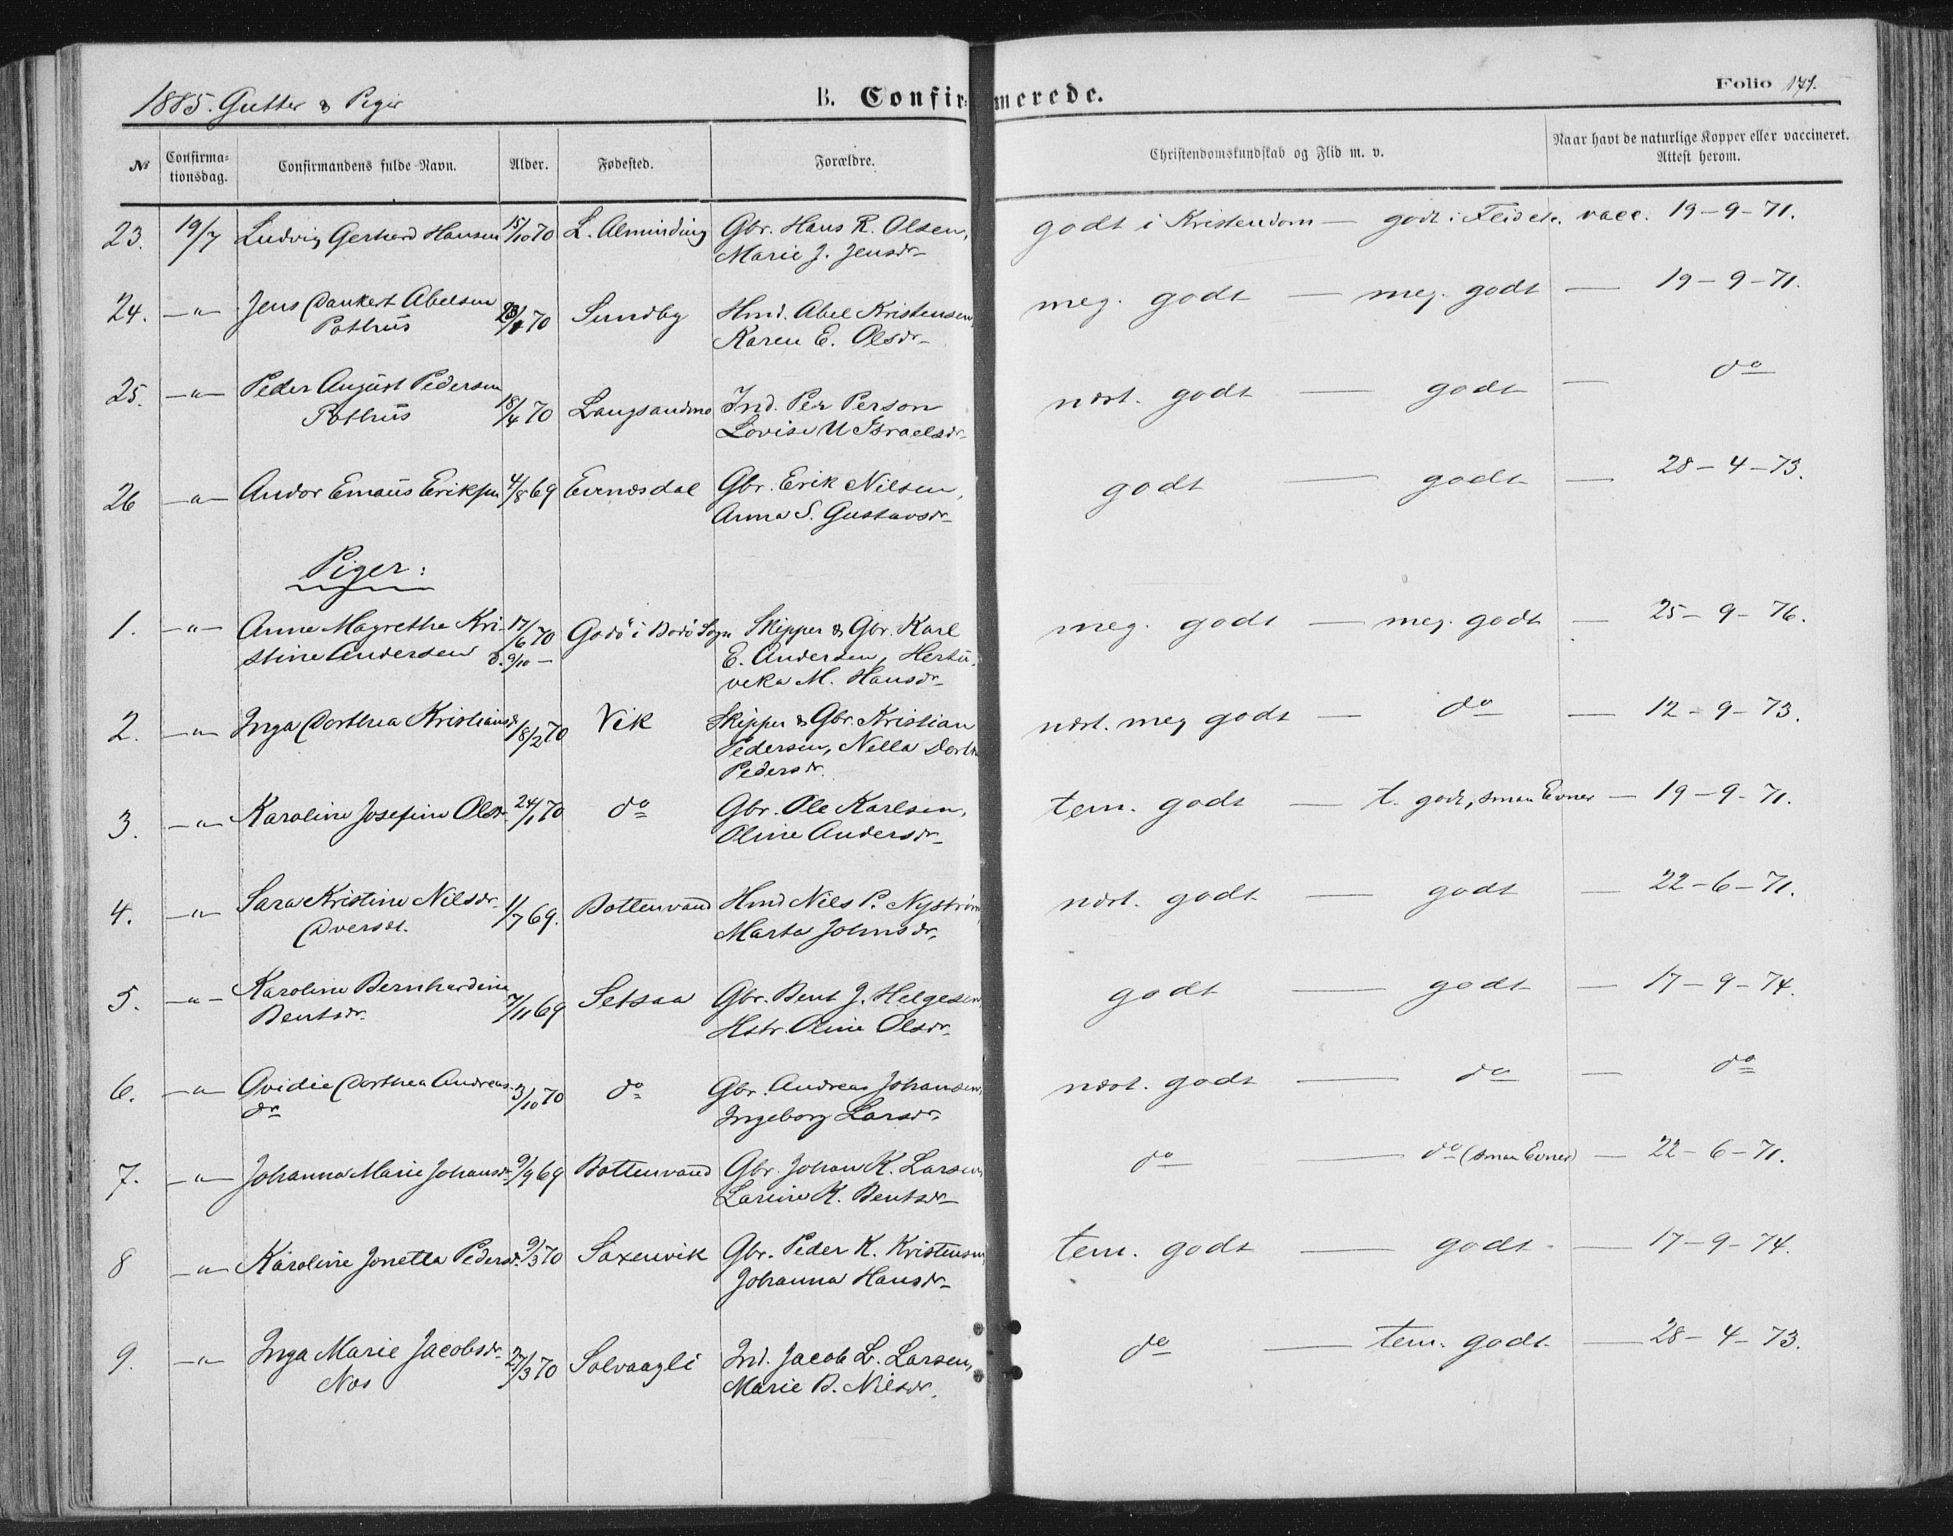 1885. Gutter & Piger
B. Confirmerede.
Folio 171.
№ Confirmationsdag. Confirmandens fulde Navn. Alder. Fødested. Forældre. Christendomskundskab og Flid m. v. Naar havt de naturlige Kopper eller vaccineret. Attest herom.
23. 19/7 Ludvig Gerhard Hansen 15/10 70 L. Alminding Gbr. Hans R. Olsen, godt i Kristendom — godt i Flid etc. vacc. 19-9-71.
Marie J. Jensdr
24. —"— Jens Dankert Abelsen 70 Sundby Hmd. Abel Kristensen, meg. godt — meg. godt — 19-9-71.
Pothus Karen E. Olsdr
25. —"— Peder August Pedersen 18/4 70 Langsandmo Ind. Per Person nost. godt — godt — do
Pothus Lovise U Israelsdr
26 —"— Andor Emaus Eriksen 4/8 69 Evenesdal Gbr. Erik Nilsen, godt — godt — 28-4-73.
Anna S. Gustavsdr
Piger:
1. —"— Anne Magrethe Kri- 17/6 70 Godö i Bodö Sogn Skipper & Gbr. Karl meg. godt — meg. godt — 25-9-76.
stine Andersen d. 9/10 — E. Andersen,
M. Hansdr
2. —"— Inga Dorthea Kristiansdr 18/2 70 Vik Skipper & Gbr. Kristian nost. meg godt — do — 12-9-73.
Pedersen, Nella Dorth
Pedersdr.
3. —"— Karoline Josefine Olsdr. 24/1 70 do Gbr. Ole Karlsen, tem. godt — t. godt, smaa Evner — 19-9-71.
Oline Andersdr
4. —"— Sara Kristine Nilsdr. 1/7 69. Bottenvand Hmd Nils P. Nyström, nost. godt — godt — 22-6-71.
Dverset. Marta Johnsdr.
5. —"— Karoline Bernhardine 7/11 69 Setsaa Gbr. Bent J. Helgesen godt — godt — 17-9-74.
Bentsdr. Hstr. Oline Olsdr
6. —"— Ovidie Dorthea Andreas- 3/10 70 do Gbr. Andreas Johansen, nost. godt — do — do
dr Ingeborg Larsdr.
7. —"— Johanna Marie Johansdr 9/9 69 Bottenvand Gbr. Johan K. Larsen, do — do (smaa Evner) — 22-6-71.
Larine K. Bentsdr
8 —"— Karoline Jonetta Pedersdr. 9/3 70 Saxenvik Gbr. Peder K. Kristensen, tem. godt — godt — 17-9-74.
Johanna Hansdr
9. —"— Inga Marie Jacobsdr. 27/3 70 Solvaagli Ind. Jacob L. Larsen, do — tem. godt. — 28-4-73.
Nes Marie B. Nilsdr.